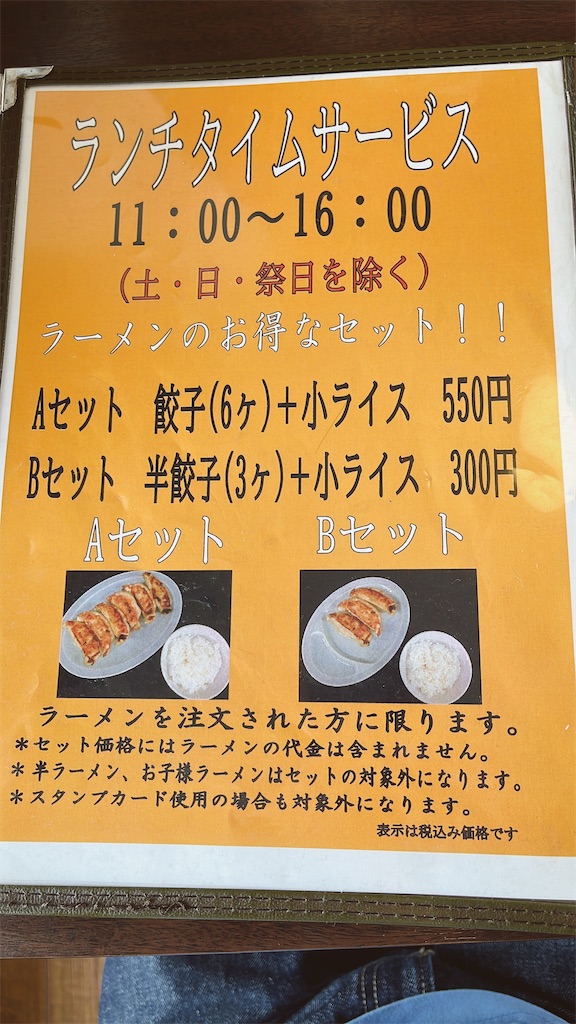 ランチタイムサービス
11：00～16：00
(土・日・祭日を除く)
ラーメンのお得なセット！！
Aセット 餃子(6ヶ)＋小ライス 550円
Bセット 半餃子(3ヶ)＋小ライス 300円
Aセット Bセット
ラーメンを注文された方に限ります。
＊セット価格にはラーメンの代金は含まれません。
＊半ラーメン、お子様ラーメンはセットの対象外になります。
＊スタンプカード使用の場合も対象外になります。
表示は税込み価格です